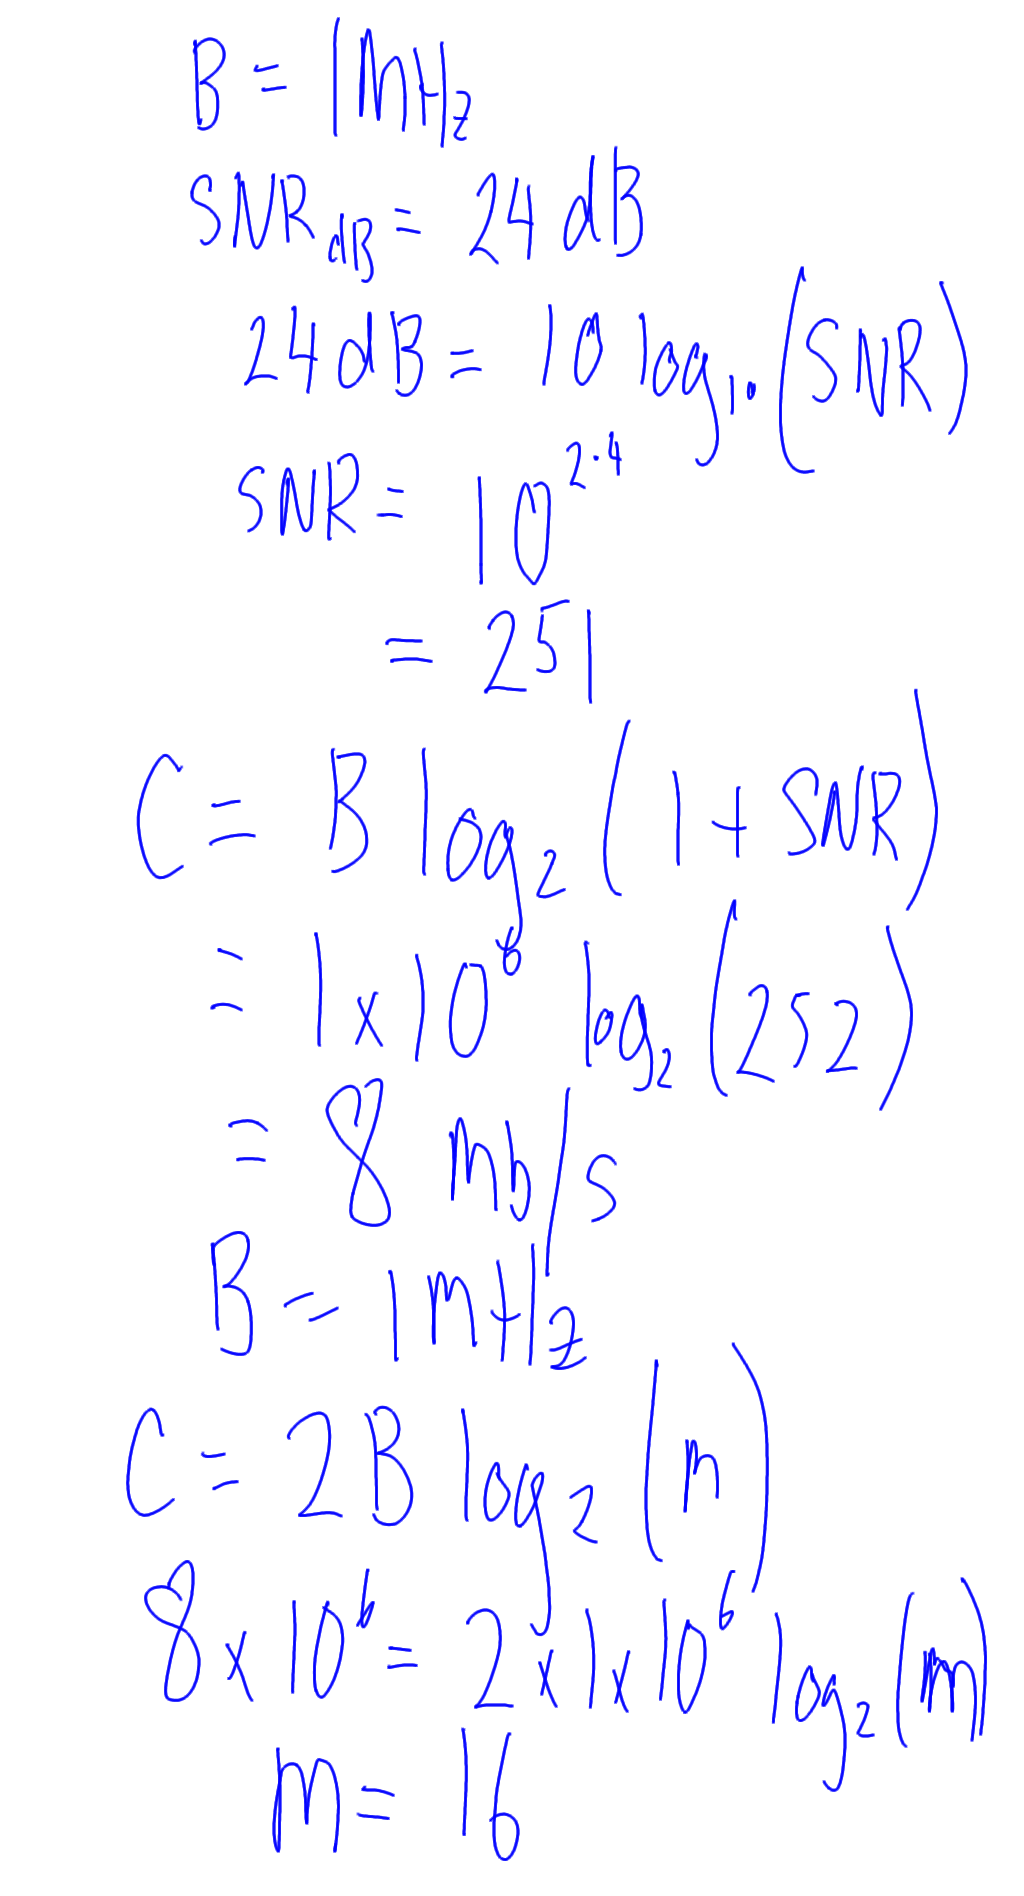 B = 1MHz
SNR_dB = 24 dB
24dB = 10 log₁₀ (SNR)
SNR = 10^2.4
= 251
C = B log₂ (1 + SNR)
= 1 x 10⁶ log₂ (252)
= 8 Mb/s
B = 1MHz
C = 2B log₂ (m)
8 x 10⁶ = 2 x 1 x 10⁶ log₂ (m)
m = 16